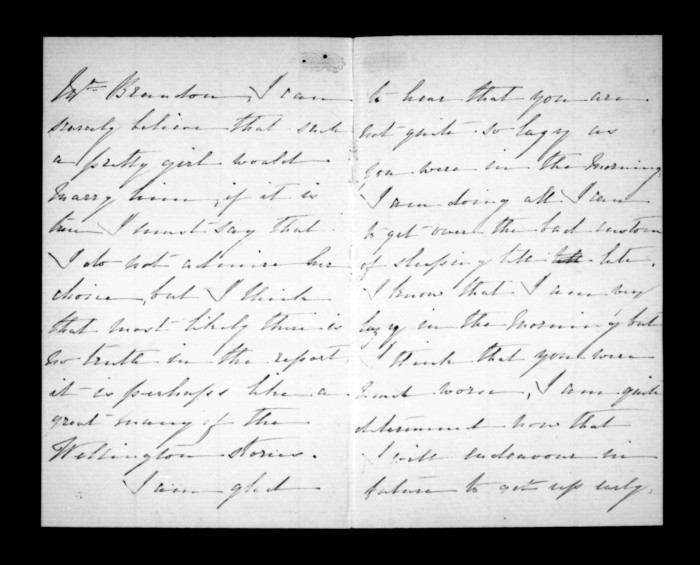 Mr Brandon, I can
scarcely believe that such
a pretty girl would
marry him, if it is
true I must say that
I do not admire her
choice, but I think
that most likely there is
no truth in the report.
it is perhaps like a
great many of the
Wellington stories.
I am glad
to hear that you are
not quite so lazy as
you were in the morning,
I am doing all I can
to get over the bad custom
of sleeping till late.
I know that I am very
lazy in the morning but
I think that you were
worse, I am quite
determined now that
I will endeavour in
future to get up early.